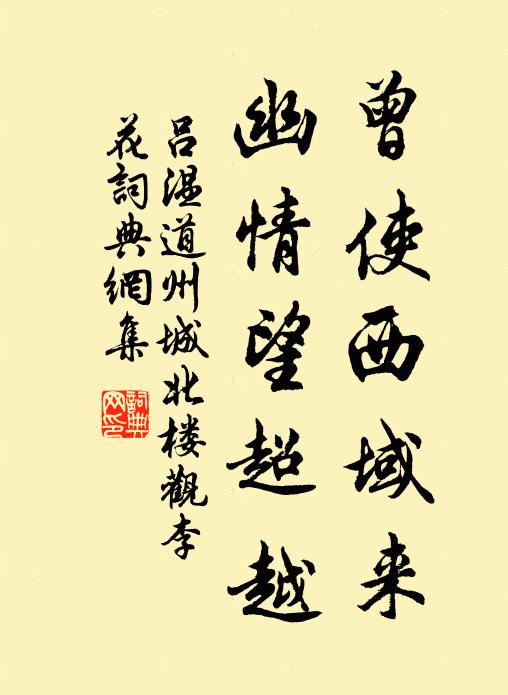 曾使西域来
幽情望超越
吕温道州城北楼觀李
花詞典網集
詞典网印